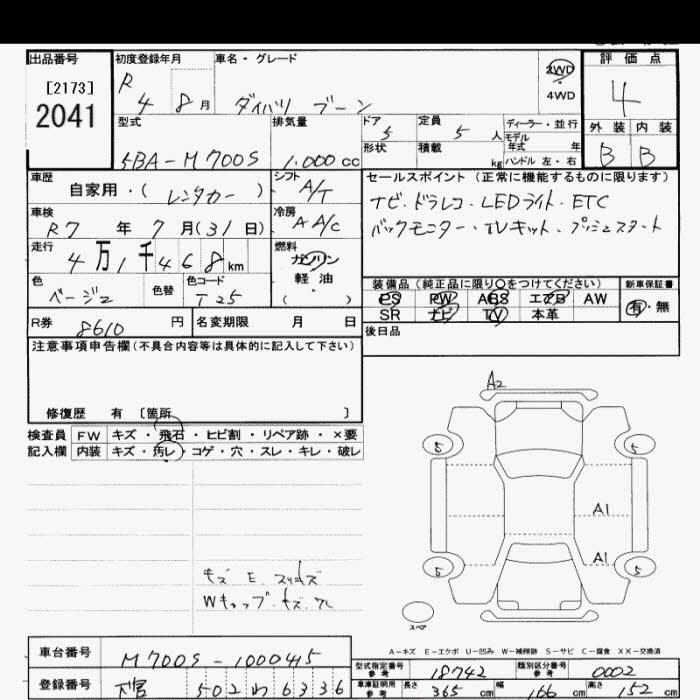 出品番号 初度登録年月 車名・グレード 評価点
[2173] R 4 8月 ダイハツ ブーン 2WD 4WD 4
2041
型式 排気量 ドア 5 定員 5人 ディーラー・並行 外装 内装
5BA-M700S 1.000cc 形状 積載 kg モデル年式 年 ハンドル 左・右 B B
車歴 自家用・( レンタカー ) シフト A/T セールスポイント (正常に機能するものに限ります)
車検 R7年 7月(31日) 冷房 A A/C ナビ・ドラレコ・LEDライト・ETC
バックモニター・TVキット・プッシュスタート
走行 4万1千468km 燃料 ガソリン 軽油 ( ・ )
色 ベージュ 色替 色コード T25 装備品(純正品に限り○をつけてください) 新車保証書
PS PW ABS エアB AW 有・無
SR ナビ TV 本革
R券 8610円 名変期限 月 日 後日品
注意事項申告欄(不具合内容等は具体的に記入して下さい)
修復歴 有 〔箇所 〕
検査員 FW キズ・飛石・ヒビ割・リペア跡・×要
記入欄 内装 キズ・汚レ・コゲ・穴・スレ・キレ・破レ
A2
5 5
A1
A1
5 5
スペア
キズ E.
Wキャップ・キズ
A-キズ E-エクボ U-凹み W-補修跡 S-サビ C-腐食 XX-交換済
車台番号 M700S-1000415 型式指定番号 参考 18742 類別区分番号 参考 0002
登録番号 502 わ 6336 車庫証明用 参考 長さ 365cm 幅 166cm 高さ 152cm